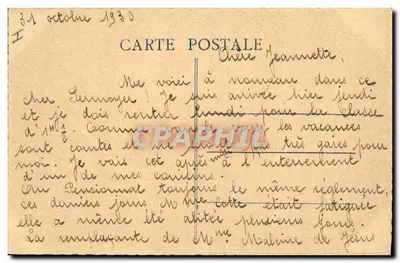 31 octobre 1930
I
CARTE POSTALE
Chère Jeannette,
Me voici à nouveau dans ce
cher ! Je suis arrivée hier jeudi
et je dois rentrer lundi pour la classe
d'1h ½. Comme les vacances
sont courtes et pas très gaies pour
moi. Je vais cet après midi à l'enterrement
d'un de mes cousins.
Au Pensionnat toujours le même règlement,
ces derniers jours Mme était fatiguée
elle a même été alitée plusieurs jours.
La remplaçante de Mme de Jésus